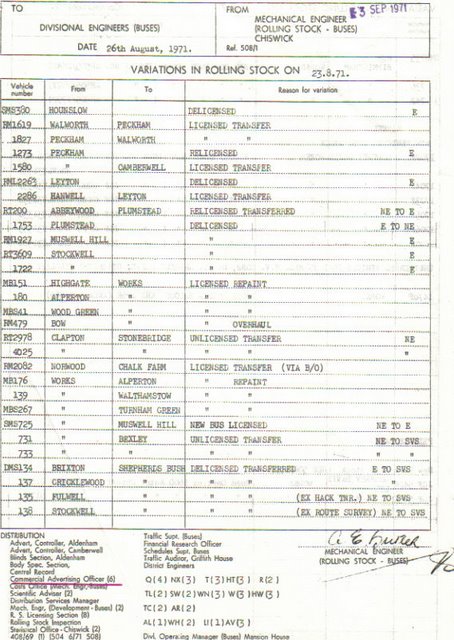 TO
DIVISIONAL ENGINEERS (BUSES)
DATE 26th August, 1971.
FROM
MECHANICAL ENGINEER
(ROLLING STOCK - BUSES)
CHISWICK
Ref. 508/1
3 SEP 1971
VARIATIONS IN ROLLING STOCK ON 23.8.71.
Vehicle number From To Reason for variation
SMS380 HOUNSLOW DELICENSED E
RM1619 WALWORTH PECKHAM LICENSED TRANSFER
1827 PECKHAM WALWORTH " "
1273 PECKHAM RELICENSED E
1580 " CAMBERWELL LICENSED TRANSFER
RML2263 LEYTON DELICENSED E
2286 HANWELL LEYTON LICENSED TRANSFER
RT200 ABBEYWOOD PLUMSTEAD RELICENSED TRANSFERRED NE TO E
1753 PLUMSTEAD DELICENSED E TO NE
RM1927 MUSWELL HILL " E
RT3609 STOCKWELL " E
1722 " " E
MB151 HIGHGATE WORKS LICENSED REPAINT
180 ALPERTON " " "
MBS41 WOOD GREEN " " "
RM479 BOW " " OVERHAUL
RT2978 CLAPTON STONEBRIDGE UNLICENSED TRANSFER NE
4025 " " " " "
RM2082 NORWOOD CHALK FARM LICENSED TRANSFER (VIA B/O)
MB176 WORKS ALPERTON " REPAINT
139 " WALTHAMSTOW " "
MBS267 " TURNHAM GREEN " "
SMS725 " MUSWELL HILL NEW BUS LICENSED NE TO E
731 " BEXLEY UNLICENSED TRANSFER NE TO SVS
733 " " " " "
DMS134 BRIXTON SHEPHERDS BUSH DELICENSED TRANSFERRED E TO SVS
137 CRICKLEWOOD " " " "
135 FULWELL " " (EX HACK TNR.) NE TO SVS
138 STOCKWELL " " (EX ROUTE SURVEY) NE TO SVS
MECHANICAL ENGINEER
(ROLLING STOCK - BUSES)
DISTRIBUTION
Advert. Controller, Aldenham
Advert. Controller, Camberwell
Blinds Section, Aldenham
Body Spec. Section,
Central Record
Commercial Advertising Officer (6)
Costs Office (Mech. Engr. Buses)
Scientific Adviser (2)
Distribution Services Manager
Mech. Engr. (Development - Buses) (2)
R. S. Licensing Section (8)
Rolling Stock Inspection
Statistical Office - Chiswick (2)
408/69 (1) 504 6/71 508)
Traffic Supt. (Buses)
Financial Research Officer
Schedules Supt. Buses
Traffic Auditor, Griffith House
District Engineers
Q(4) NX(3) T(3) HT(3) R(2)
TL(2) SW(2) WN(3) W(3) HW(3)
TC(2) AR(2)
AL(1) WH(2) LI(1) AV(3)
Divl. Operating Manager (Buses) Mansion House